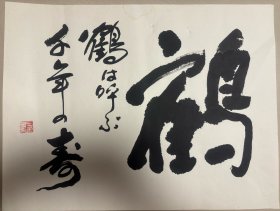 鶴
鶴は呼ぶ
千年の寿